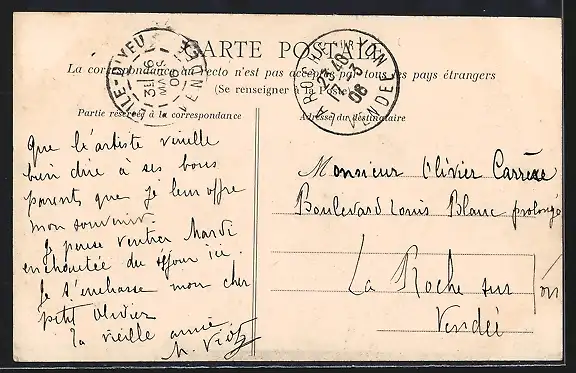 CARTE POSTALE
La correspondance au recto n'est pas acceptée par tous les pays étrangers
(Se renseigner à la Poste)
Partie réservée à la correspondance
Adresse du destinataire
ILE-D'YEU
VENDÉE
LA ROCHE-SUR-YON
VENDÉE
Que l'artiste veuille
bien dire à ses bons
parents que je leur offre
mon souvenir.
Je pense rentrer Mardi
enchantée du séjour ici.
Je t'embrasse mon cher
petit Olivier
ta vieille amie
Monsieur Olivier Carrèze
Boulevard Louis Blanc prolongé
La Roche sur
Yon
Vendée